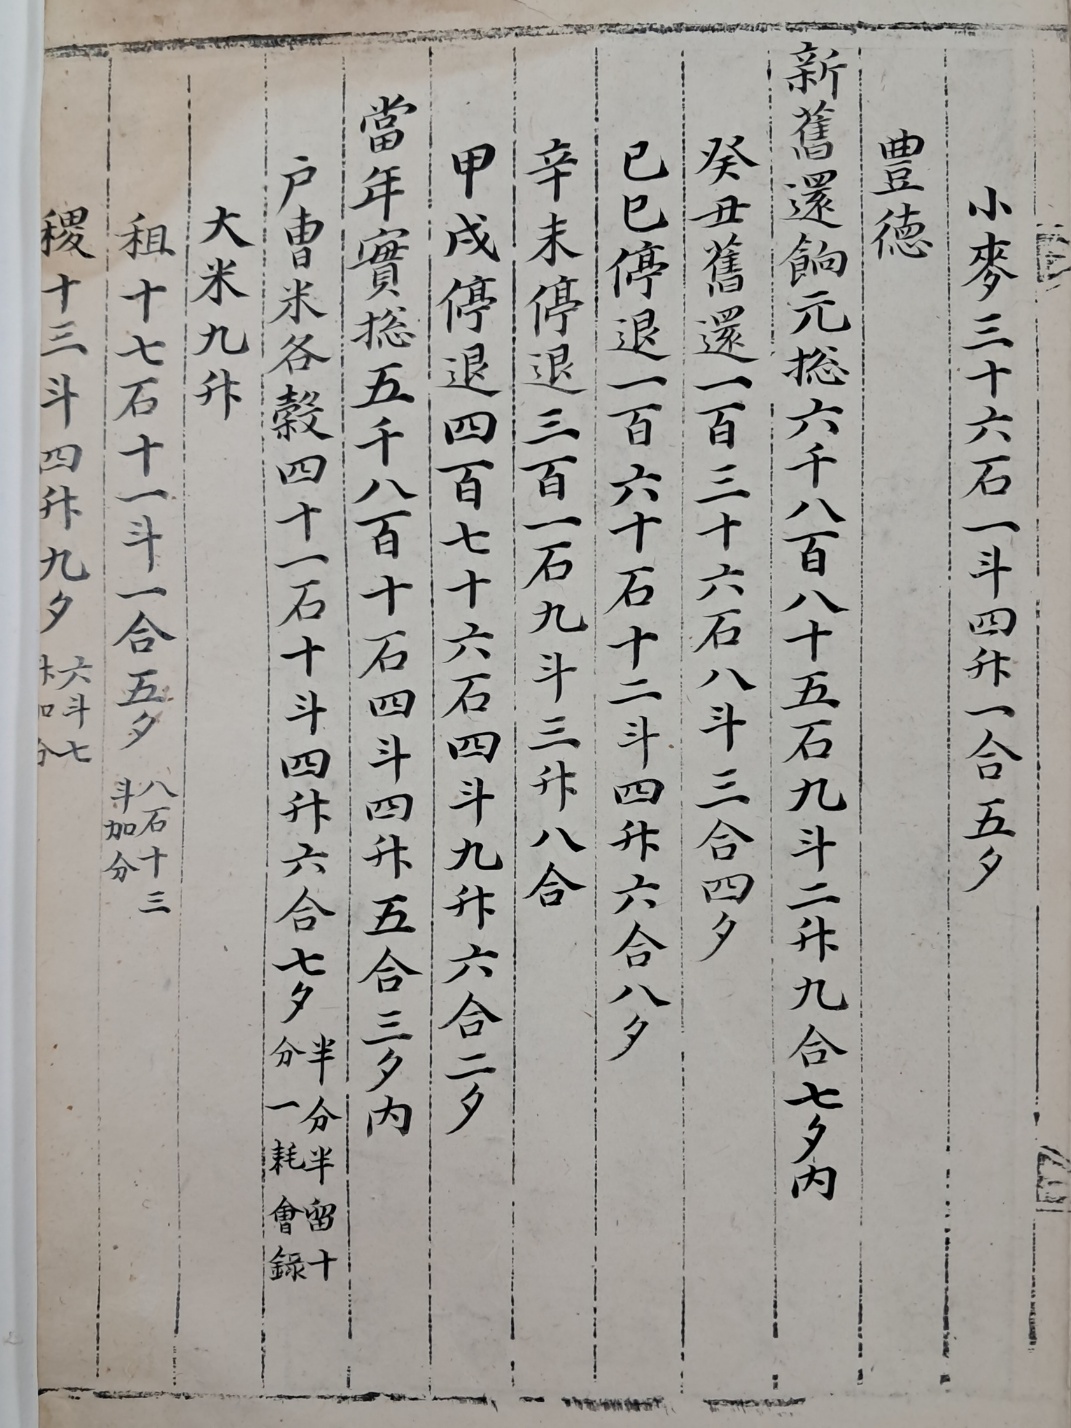 小麥三十六石一斗四升一合五夕
豊德
新舊還餉元摠六千八百八十五石九斗二升九合七夕內
癸丑舊還一百三十六石八斗三合四夕
己巳停退一百六十石十二斗四升六合八夕
辛未停退三百一石九斗三升八合
甲戌停退四百七十六石四斗九升六合二夕
當年實摠五千八百十石四斗四升五合三夕內
戶曺米各穀四十一石十斗四升六合七夕
半分半留十
分一耗會錄
大米九升
租十七石十一斗一合五夕
八石十三
斗加分
稷十三斗四升九夕
六斗七
升加分